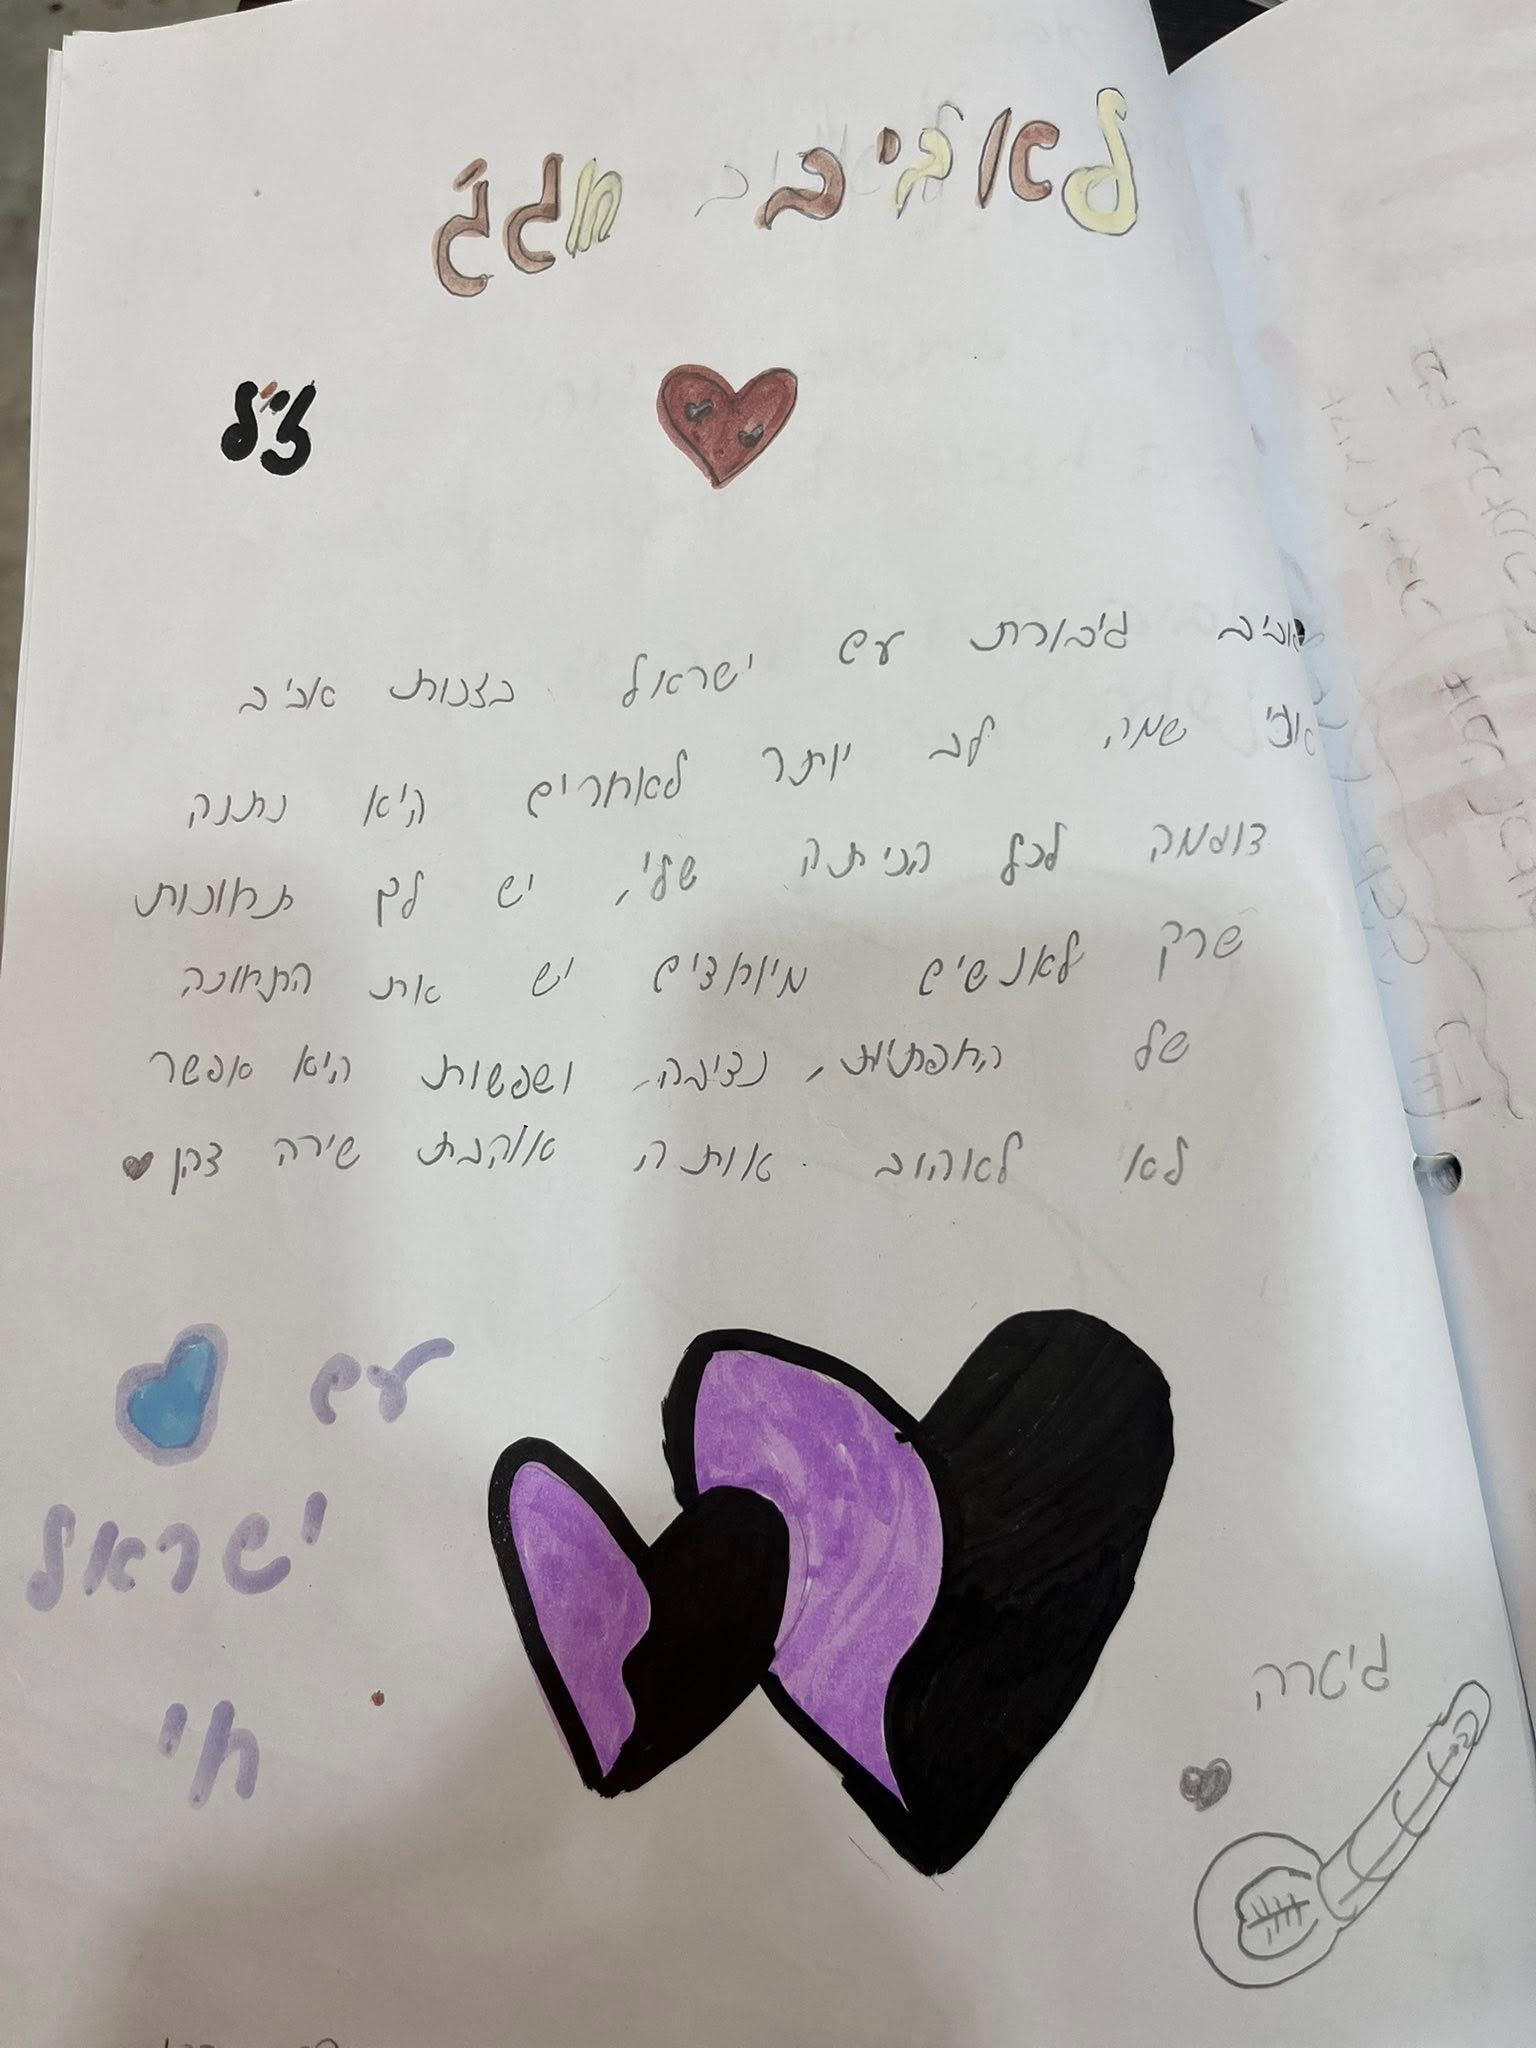 לאביב חגג
ז"ל
אביב גיבורת עם ישראל בזכות אביב
אני שמה לב יותר לאחרים היא נתנה
דוגמה לכל הכיתה שלי, יש לה תכונות
שרק לאנשים מיוחדים יש את התכונה
של האכפתיות, נדיבה, ושפשוט היא אפשר
לא לאהוב אותה אוהבת שירה
עם
ישראל
חי
גיטרה